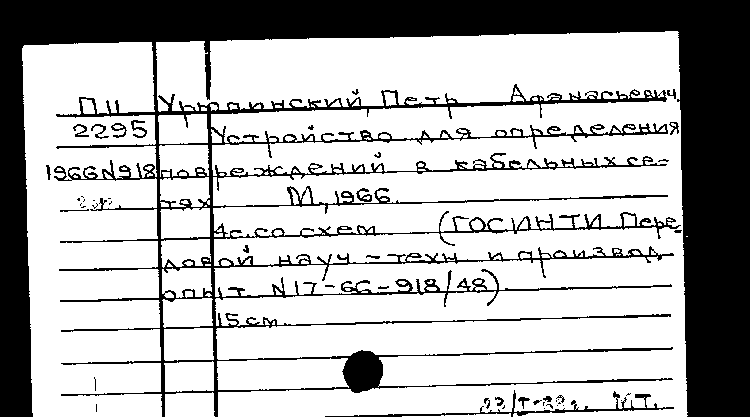 П11 Петр Афанасьевич.
2295 Устройство для определения
1966N918 повреждений в кабельных се-
тях М., 1966.
4с. со схем (ГОСИНТИ. Пере-
довой науч.-техн и производ
опыт. N17-66-918/48).
15 см.
МТ.